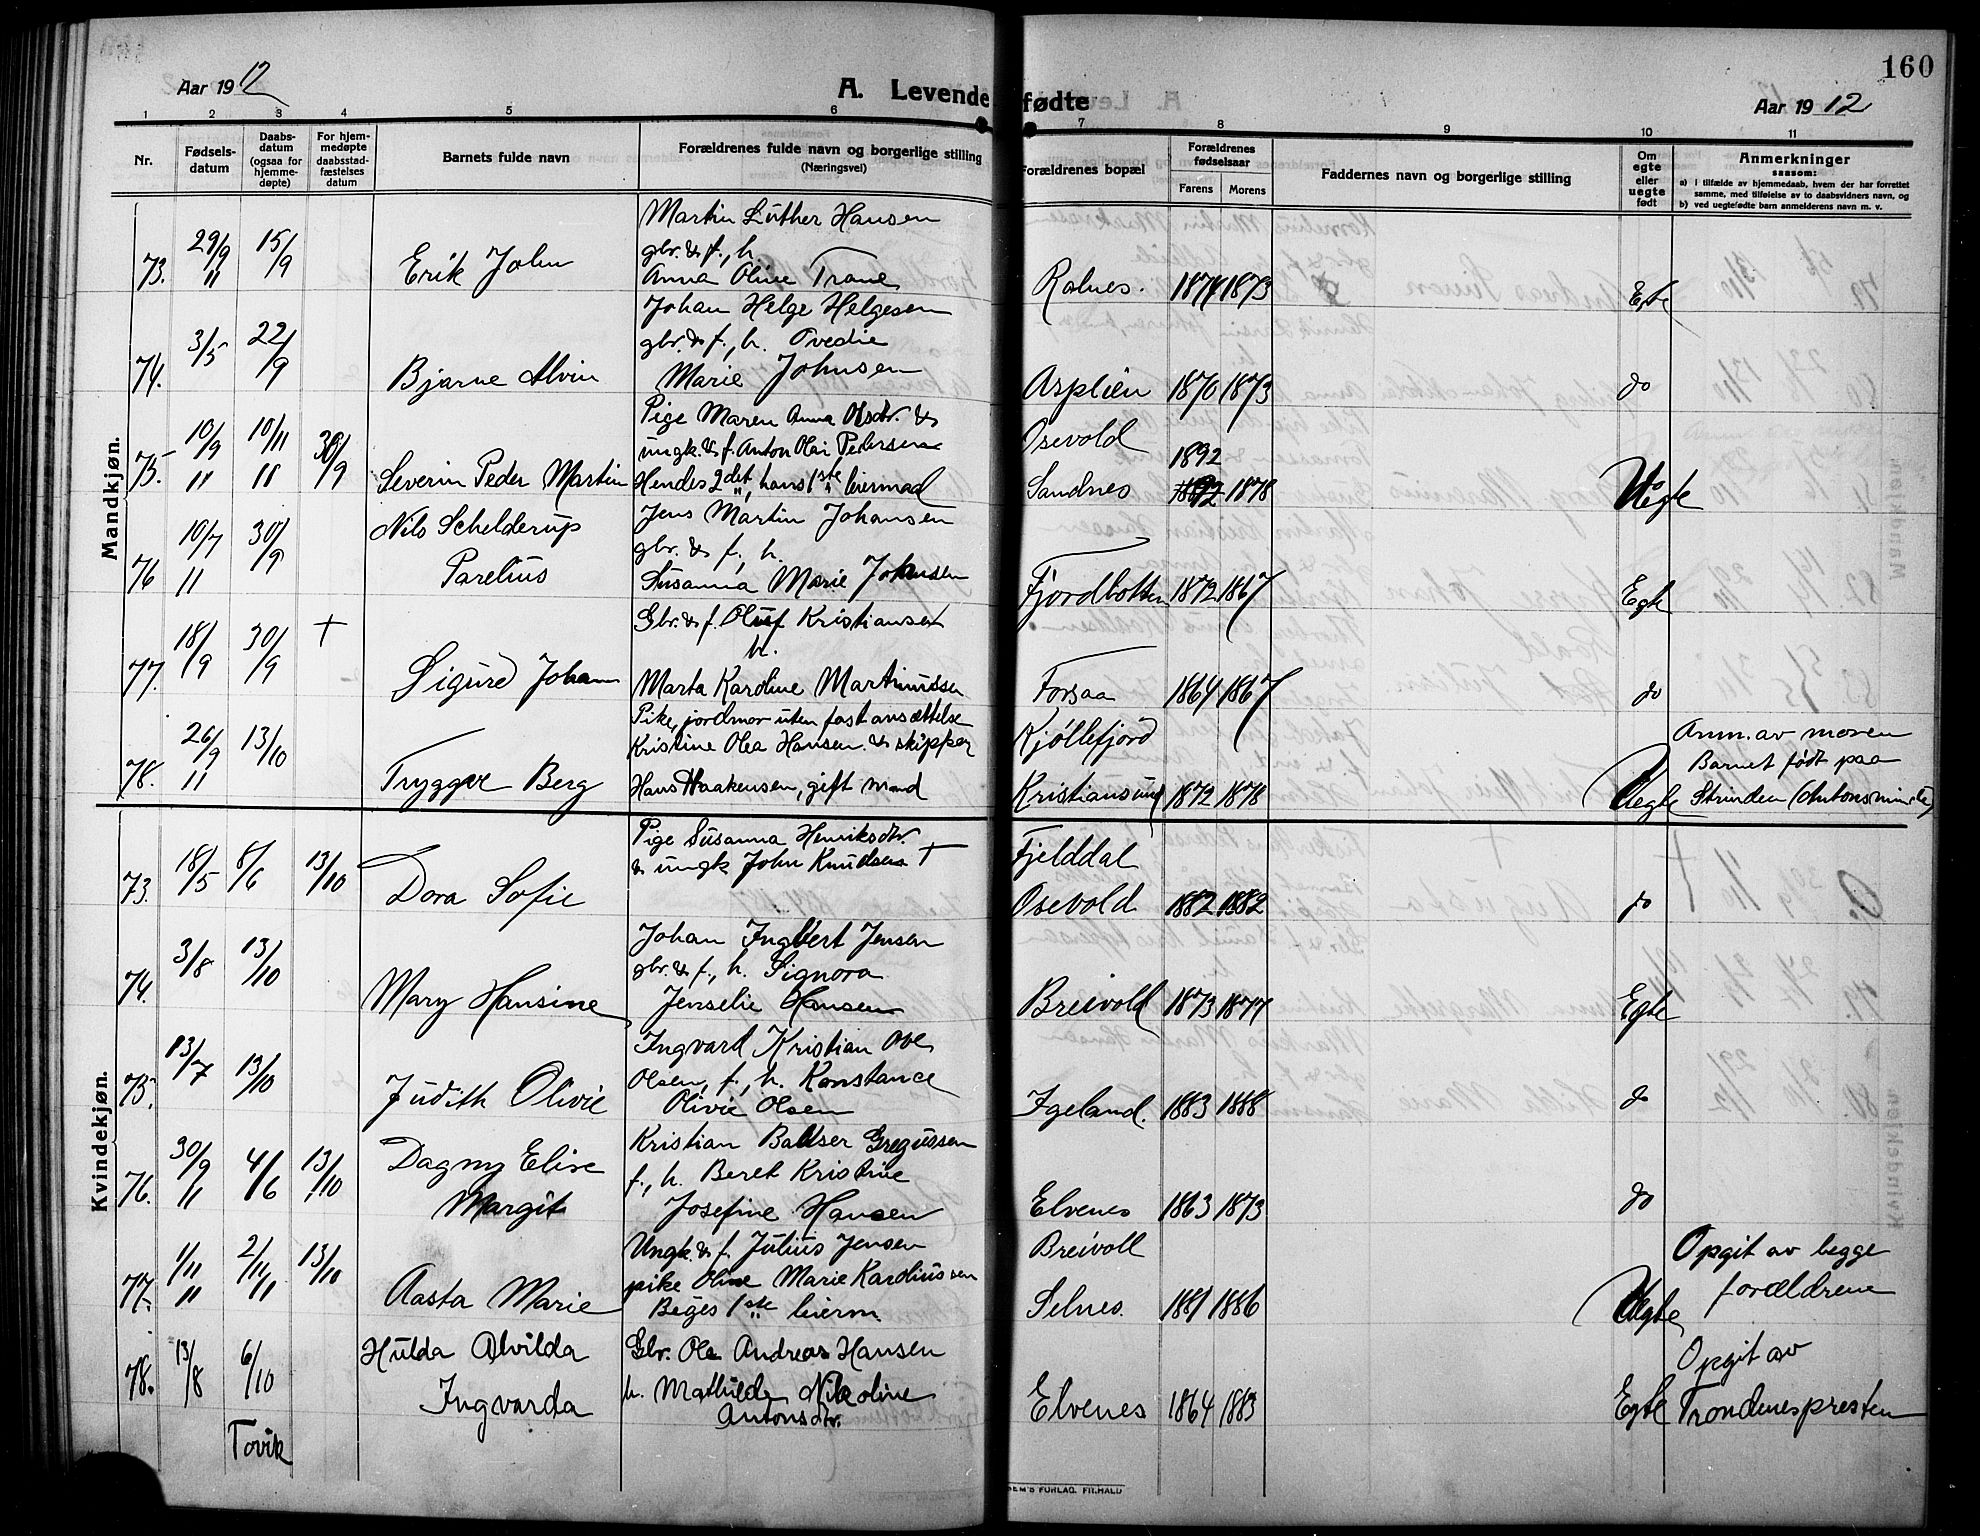 160
Aar 1912
A. Levende fødte
Aar 1912
1 2 3 4 5 6 7 8 9 10 11
Nr.
Fødsels-
datum
Daabs-
datum
(ogsaa for
hjemme-
døpte)
For hjem-
medøpte
daabsstad-
fæstelses
datum
Barnets fulde navn
Forældrenes fulde navn og borgerlige stilling
(Næringsvei)
Forældrenes bopæl
Forældrenes
fødselsaar
Farens Morens
Faddernes navn og borgerlige stilling
Om
egte
eller
uegte
født
Anmerkninger
saasom:
a) i tilfælde av hjemmedaab, hvem der har forrettet
samme, med tilføielse av to daabsvidners navn, og
b) ved uegtefødte barn anmelderens navn m. v.
Mandkjøn.
Martin Luther Hansen
gbr. & f., h.
73. 29/9 11 15/9 Erik John Anna Oline Trane Rolnes. 1874 1873 Egte
Johan Helge Helgesen
gbr. & f., h. Ovedie
74. 3/5 22/9 Bjarne Alvin Marie Johnsen Asplien 1870 1873 do
Pige Maren Anna Olsdtr. &
ungk. & f. Anton Olai Pedersen Osevold 1892
75. 10/9 11 10/11 11 30/9 Severin Peder Martin Hendes 2det, hans 1ste leiermaal Sandnes 1892 1878 Uegte
Nils Schelderup Jens Martin Johansen
gbr. & f., h.
76 10/7 11 30/9 Parelius Susanna Marie Johnsen Fjordbotten 1872 1867 Egte
Gbr. & f. Oluf Kristiansen
h.
77. 18/9 30/9 + Sigurd Johan Marta Karoline Martinussen Forsaa 1864 1867 do
Pike, jordmor uten fast ansættelse
Kristine Olea Hansen & skipper Kjøllefjord Anm. av moren
Barnet født paa
78. 26/9 11 13/10 Tryggve Berg Hans Haakensen, gift mand Kristiansund 1872 1878 Uegte Strinden (Antonsminde)
Kvindekjøn.
Pige Susanna Henriksdtr.
& ungk John Knudsen + Fjelddal
73. 18/5 8/6 13/10 Dora Sofie Osevold 1882 1882 do
Johan Ingbert Jensen
gbr. & f., h. Signora
74. 3/8 13/10 Mary Hansine Jenselie Hansen Breivold 1873 1877 Egte
Ingvard Kristian Ove
Olsen, f., h. Konstance
75. 13/7 13/10 Judith Olivie Olivie Olsen Igeland. 1883 1888 do
Kristian Baltser Gregussen
Dagny Elise f., h. Beret Kristine
76. 30/9 11 4/6 13/10 Margit Josefine Hansen Elvenes 1863 1873 do
Ungk. & f. Julius Jensen Breivoll Opgit av begge
pike Oline Marie Karoliussen forældrene
77. 1/11 11 2/11 11 13/10 Aasta Marie Beges 1ste leierm. Selnes. 1881 1886 Uegte
Hulda Alvilda Gbr. Ole Andreas Hansen Opgit av
78. 13/8 6/10 Ingvarda h. Mathilde Nikoline Elvenes 1864 1883 Egte Trondenespresten
Antonsdtr.
Tovik
SEM'S FORLAG. FR.HALD